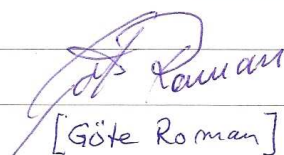 Göte Roman
[Göte Roman]